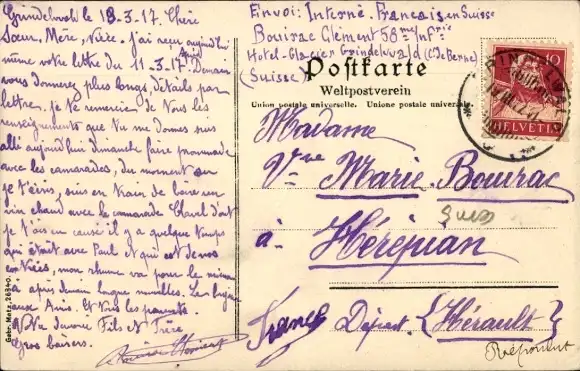 Grindelwald le 18-3-17. Chère
Sœur, Mère, Nièce. j'ai reçu aujourd'hui
même votre lettre du 11-3-17. Demain
vous donnerez plus longs détails par
lettre. je te remercie de tous les
renseignements que tu me donnes suis
allé aujourd'hui dimanche faire promenade
avec les camarades, du moment que
je t'écris, suis en train de boire un
vin chaud avec le camarade
je t'ais en cause il y a quelque temps
qui était avec Paul et qui est de nos
mon rhume va pour le mieux
à après demain longue nouvelles. Le bonjour
aux Amis. Et tous les parents.
Ton Fils et Frère
Gros baisers.
Envoi: Interné. Français en Suisse
Bouirac Clément 58me Inf rie
Hotel-Glacier Grindelwald (C. de Berne)
(Suisse)
Postkarte
Weltpostverein
Union postale universelle. Unione postale universale.
Madame
Vve Marie. Bouirac
à Hérépian
France Départ. {Hérault}
HELVETIA
10
GRINDELWALD
Gebr. Metz, 26340.